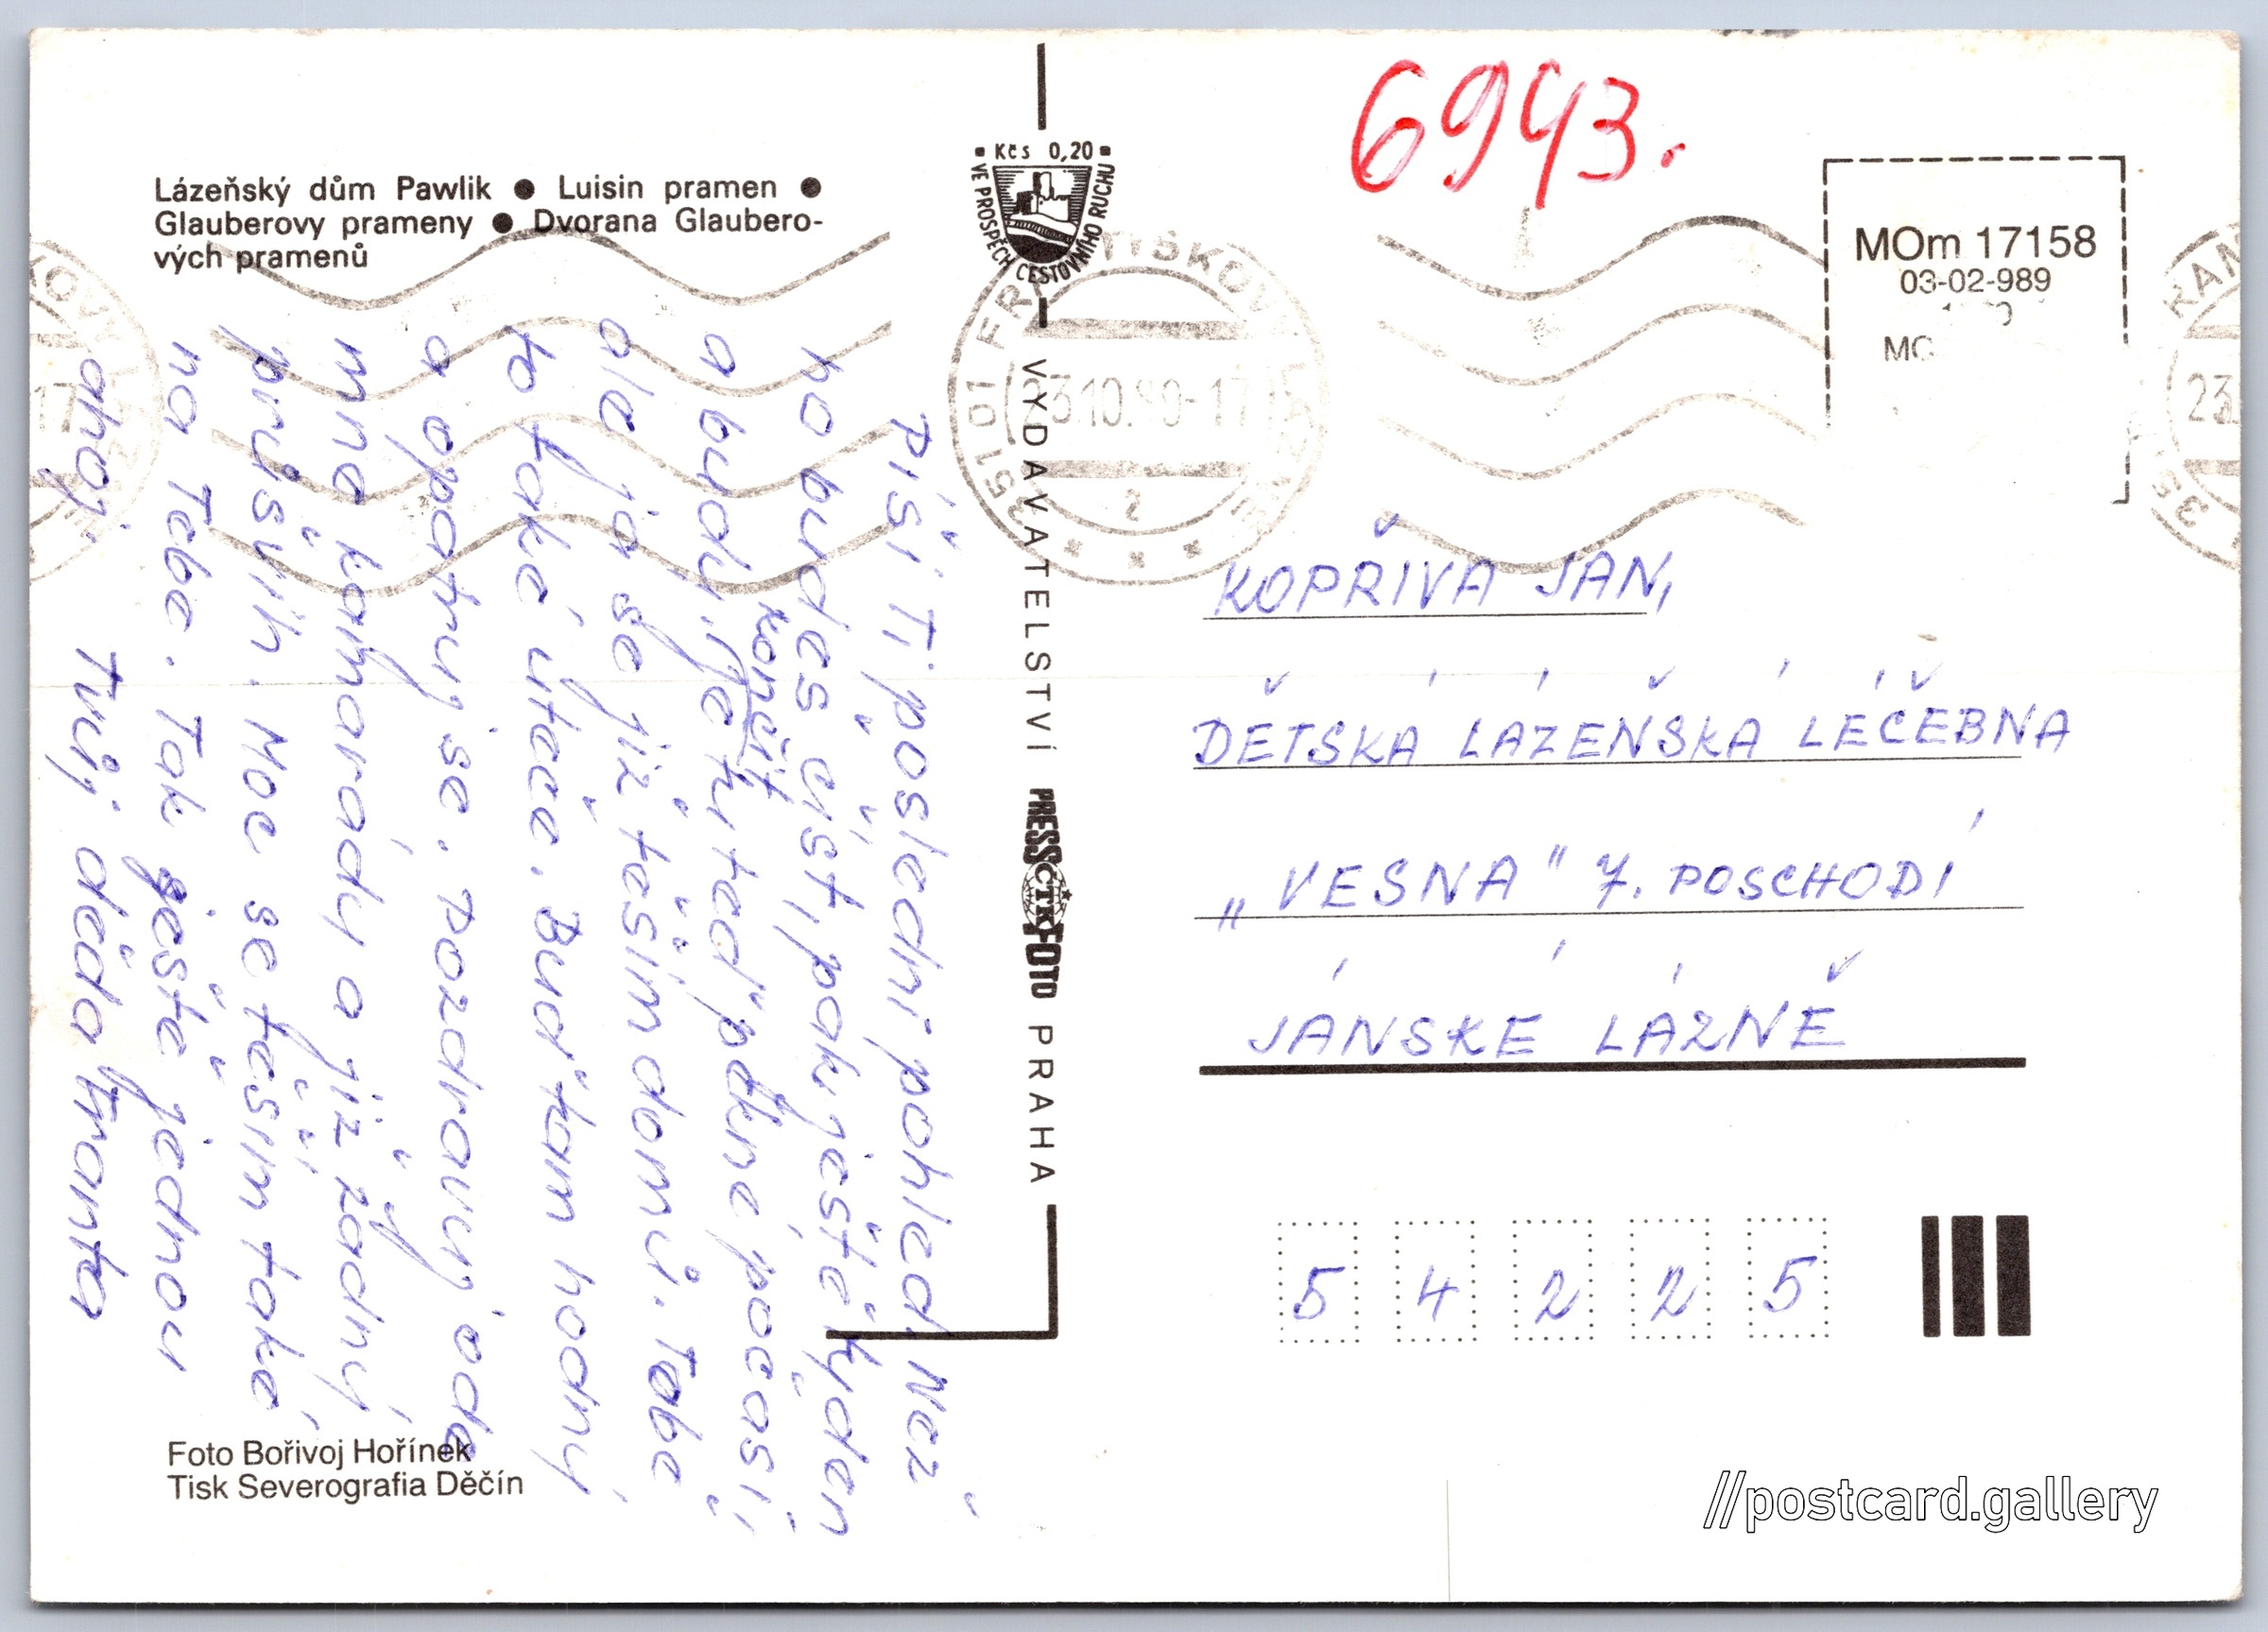 Lázeňský dům Pawlik ● Luisin pramen ●
Glauberovy prameny ● Dvorana Glaubero-
vých pramenů
Kčs 0,20
VE PROSPĚCH CESTOVNÍHO RUCHU
6943.
MOm 17158
03-02-989
351 01 FR TIŠKOVY
23.10.90-17
2
Píši Ti poslední pohled. Než
ho budeš číst, pak ještě týden
končit
a budu. Je tu teď pěkné počasí
ale já se již těším domů. Tobě
to také uteče. Buď tam hodný
a opatruj se. Pozdravuj ode
mne kamarády a již žádný
průšvih. Moc se těším také
na Tebe. Tak ještě jednou
ahoj. Tvůj děda Franta
VYDAVATELSTVÍ PRESSČTKFOTO PRAHA
KOPŘIVA JAN,
DĚTSKÁ LÁZEŇSKÁ LÉČEBNA
„VESNA" 7. POSCHODÍ
JÁNSKÉ LÁZNĚ
5 4 2 2 5
Foto Bořivoj Hořínek
Tisk Severografia Děčín
//postcard.gallery